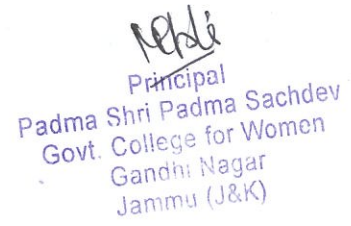 Principal
Padma Shri Padma Sachdev
Govt. College for Women
Gandhi Nagar
Jammu (J&K)